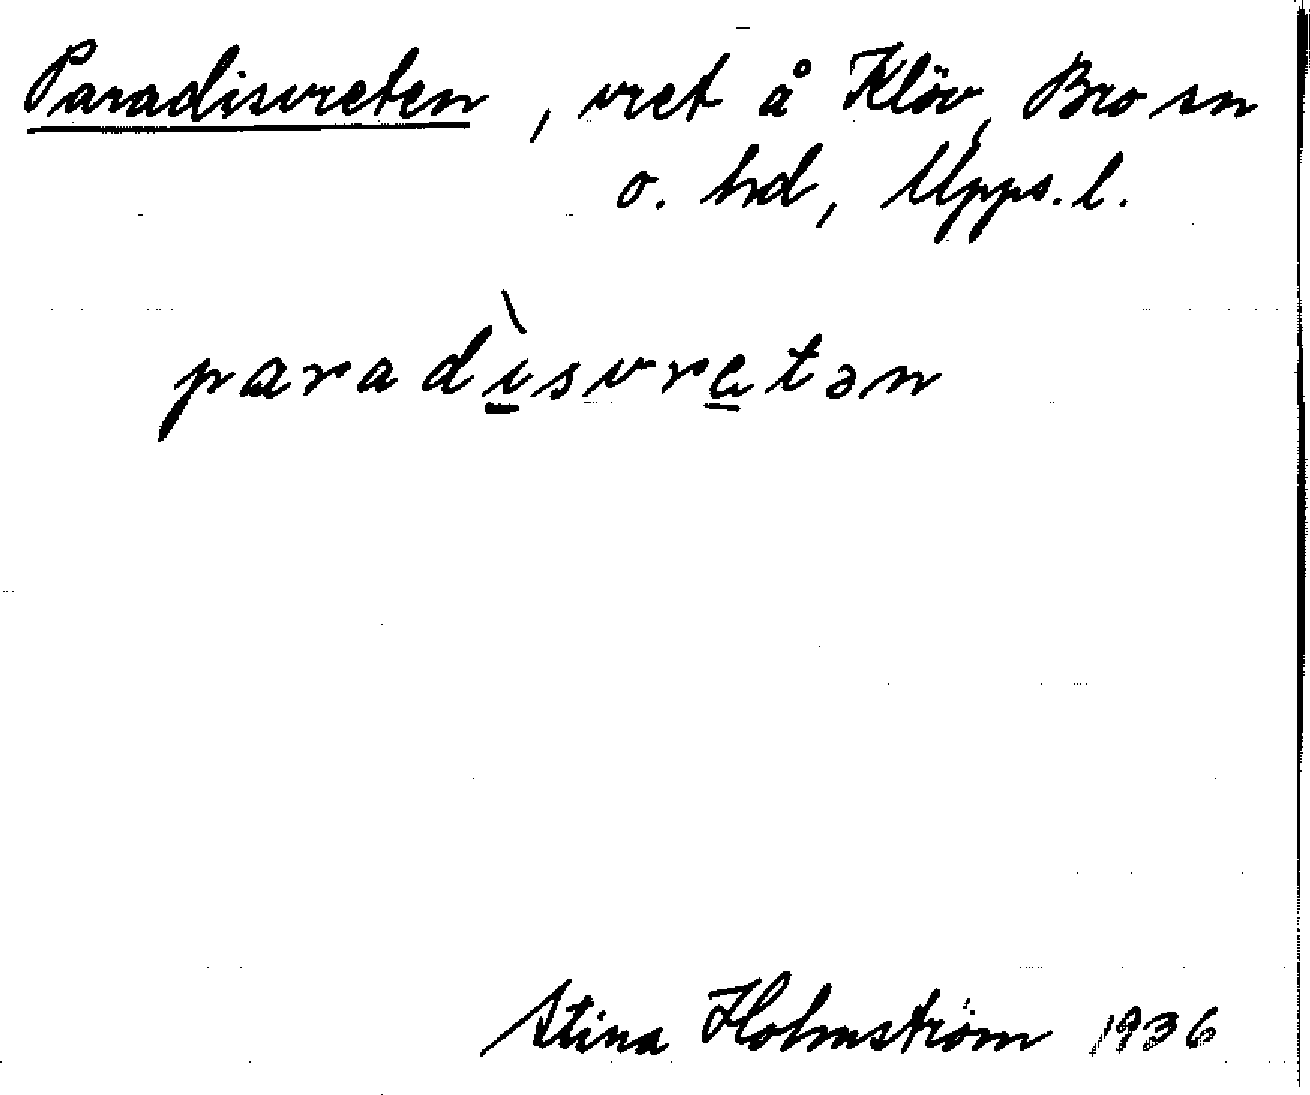 Paradisvreten, vret å Klöv, Bro sn
o. hd, Upps. l.
paradìsvretən
Stina Holmström 1936